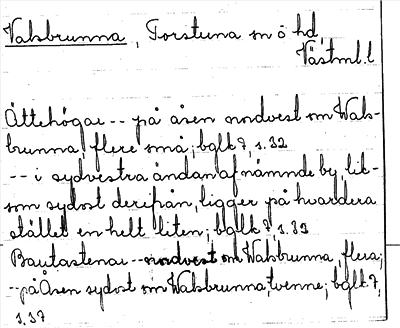 Valsbrunna, Torstuna sn o hd,
Västml. l
Ättehögar -- på åsen nordvest om Wals-
brunna flere små; bglk 7, s. 32
-- i sydvestra ändan af nämnde by, lik-
som sydost derifrån, ligger på hvardera
stället en helt liten; bglk 7 s. 32
Bautastenar -- nordvest om Walsbrunna, flera;
-- på Åsen sydost om Walsbrunna, tvenne; bglk 7,
s. 37